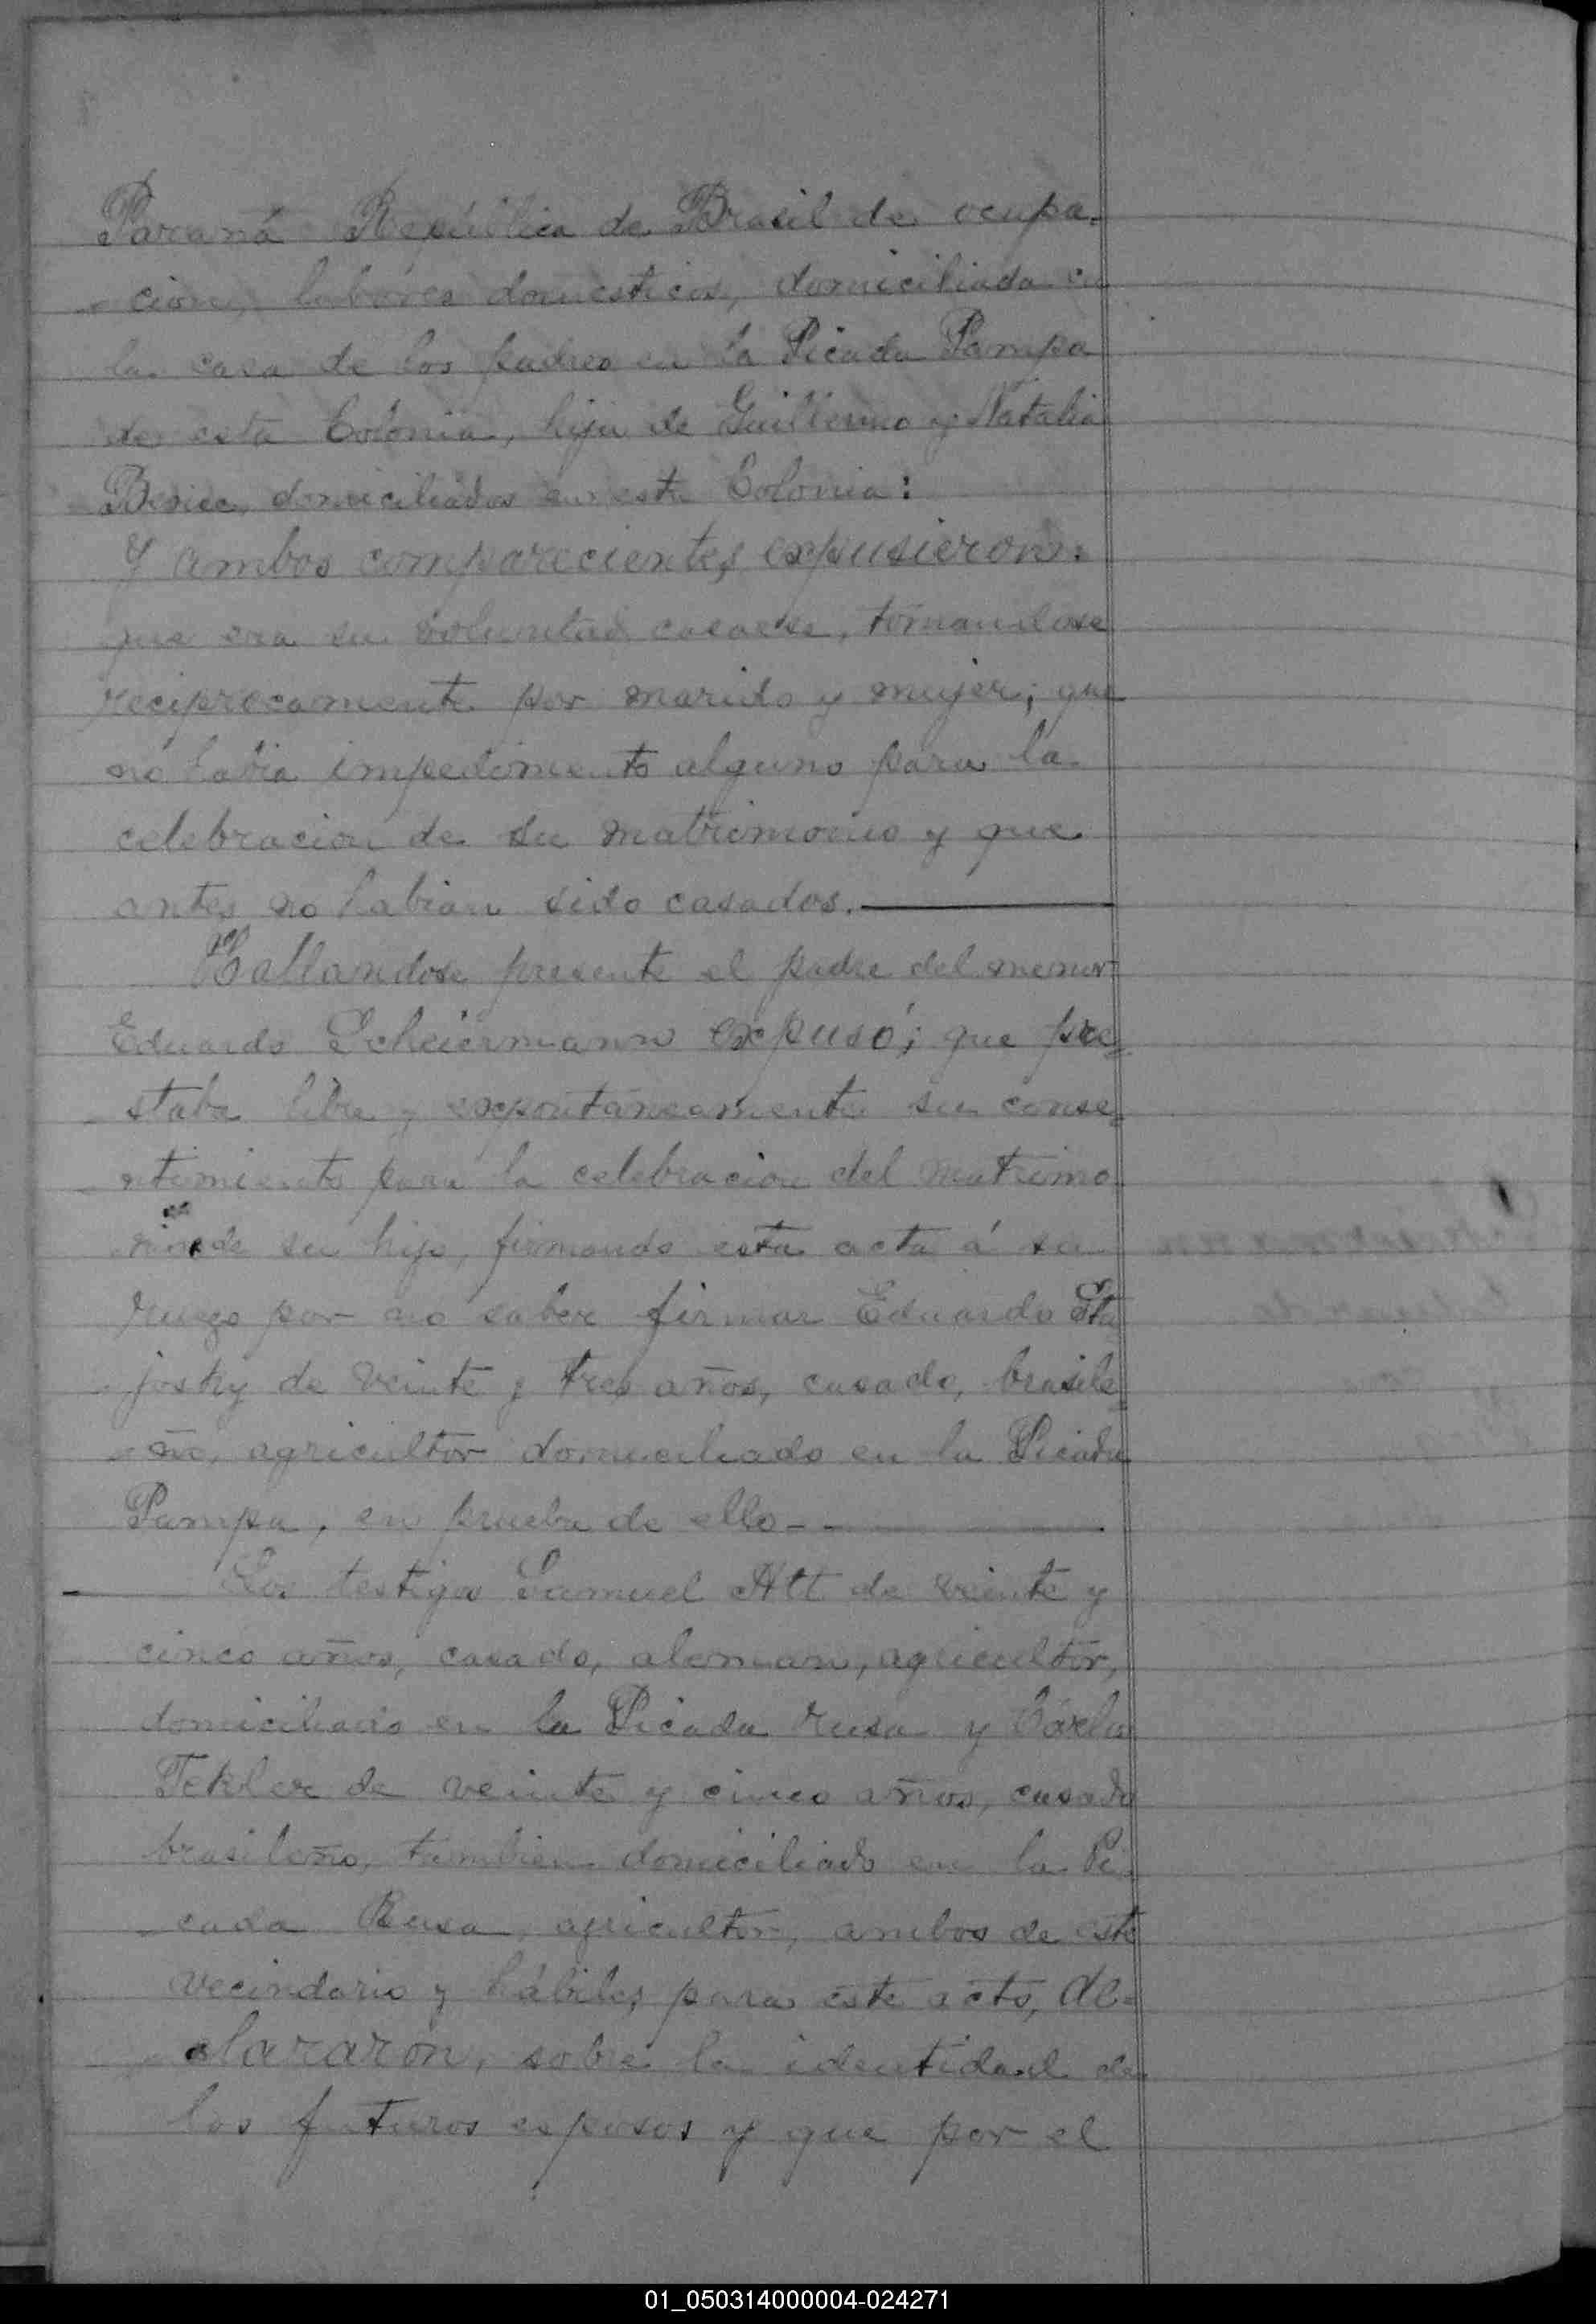 Paraná República de Brasil de ocupa=
cion, labores domesticos, domiciliada en
la casa de los padres en la Picada Pampa
de esta Colonia, hija de Guillermo y Natalia
domiciliados en esta Colonia:
Y ambos comparecientes expusieron:
que era su voluntad casarse, tomandose
reciprocamente por marido y mujer; que
no habia impedimento alguno para la
celebracion de su matrimonio y que
antes no habian sido casados.
Hallandose presente el padre del menor
Eduardo Scheiermann expusó; que pre=
staba libre y expontáneamente su conse=
ntimiento para la celebracion del matrimo
nio de su hijo, firmando esta acta á su
ruego por no saber firmar Eduardo Sta
josky de veinte y tres años, casado, brasile=
ño, agricultor domiciliado en la Picada
Pampa, en prueba de ello
Los testigos Samuel Altt de veinte y
cinco años, casado, aleman, agricultor,
domiciliado en la Picada rusa y Cárlos
Tekler de veinte y cinco años, casado
brasileño, tambien domiciliado en la Pi
cada Rusa, agricultor, ambos de este
vecindario y hábiles para este acto, de=
clararon, sobre la identidad de
los futuros esposos y que por el
01_050314000004-024271